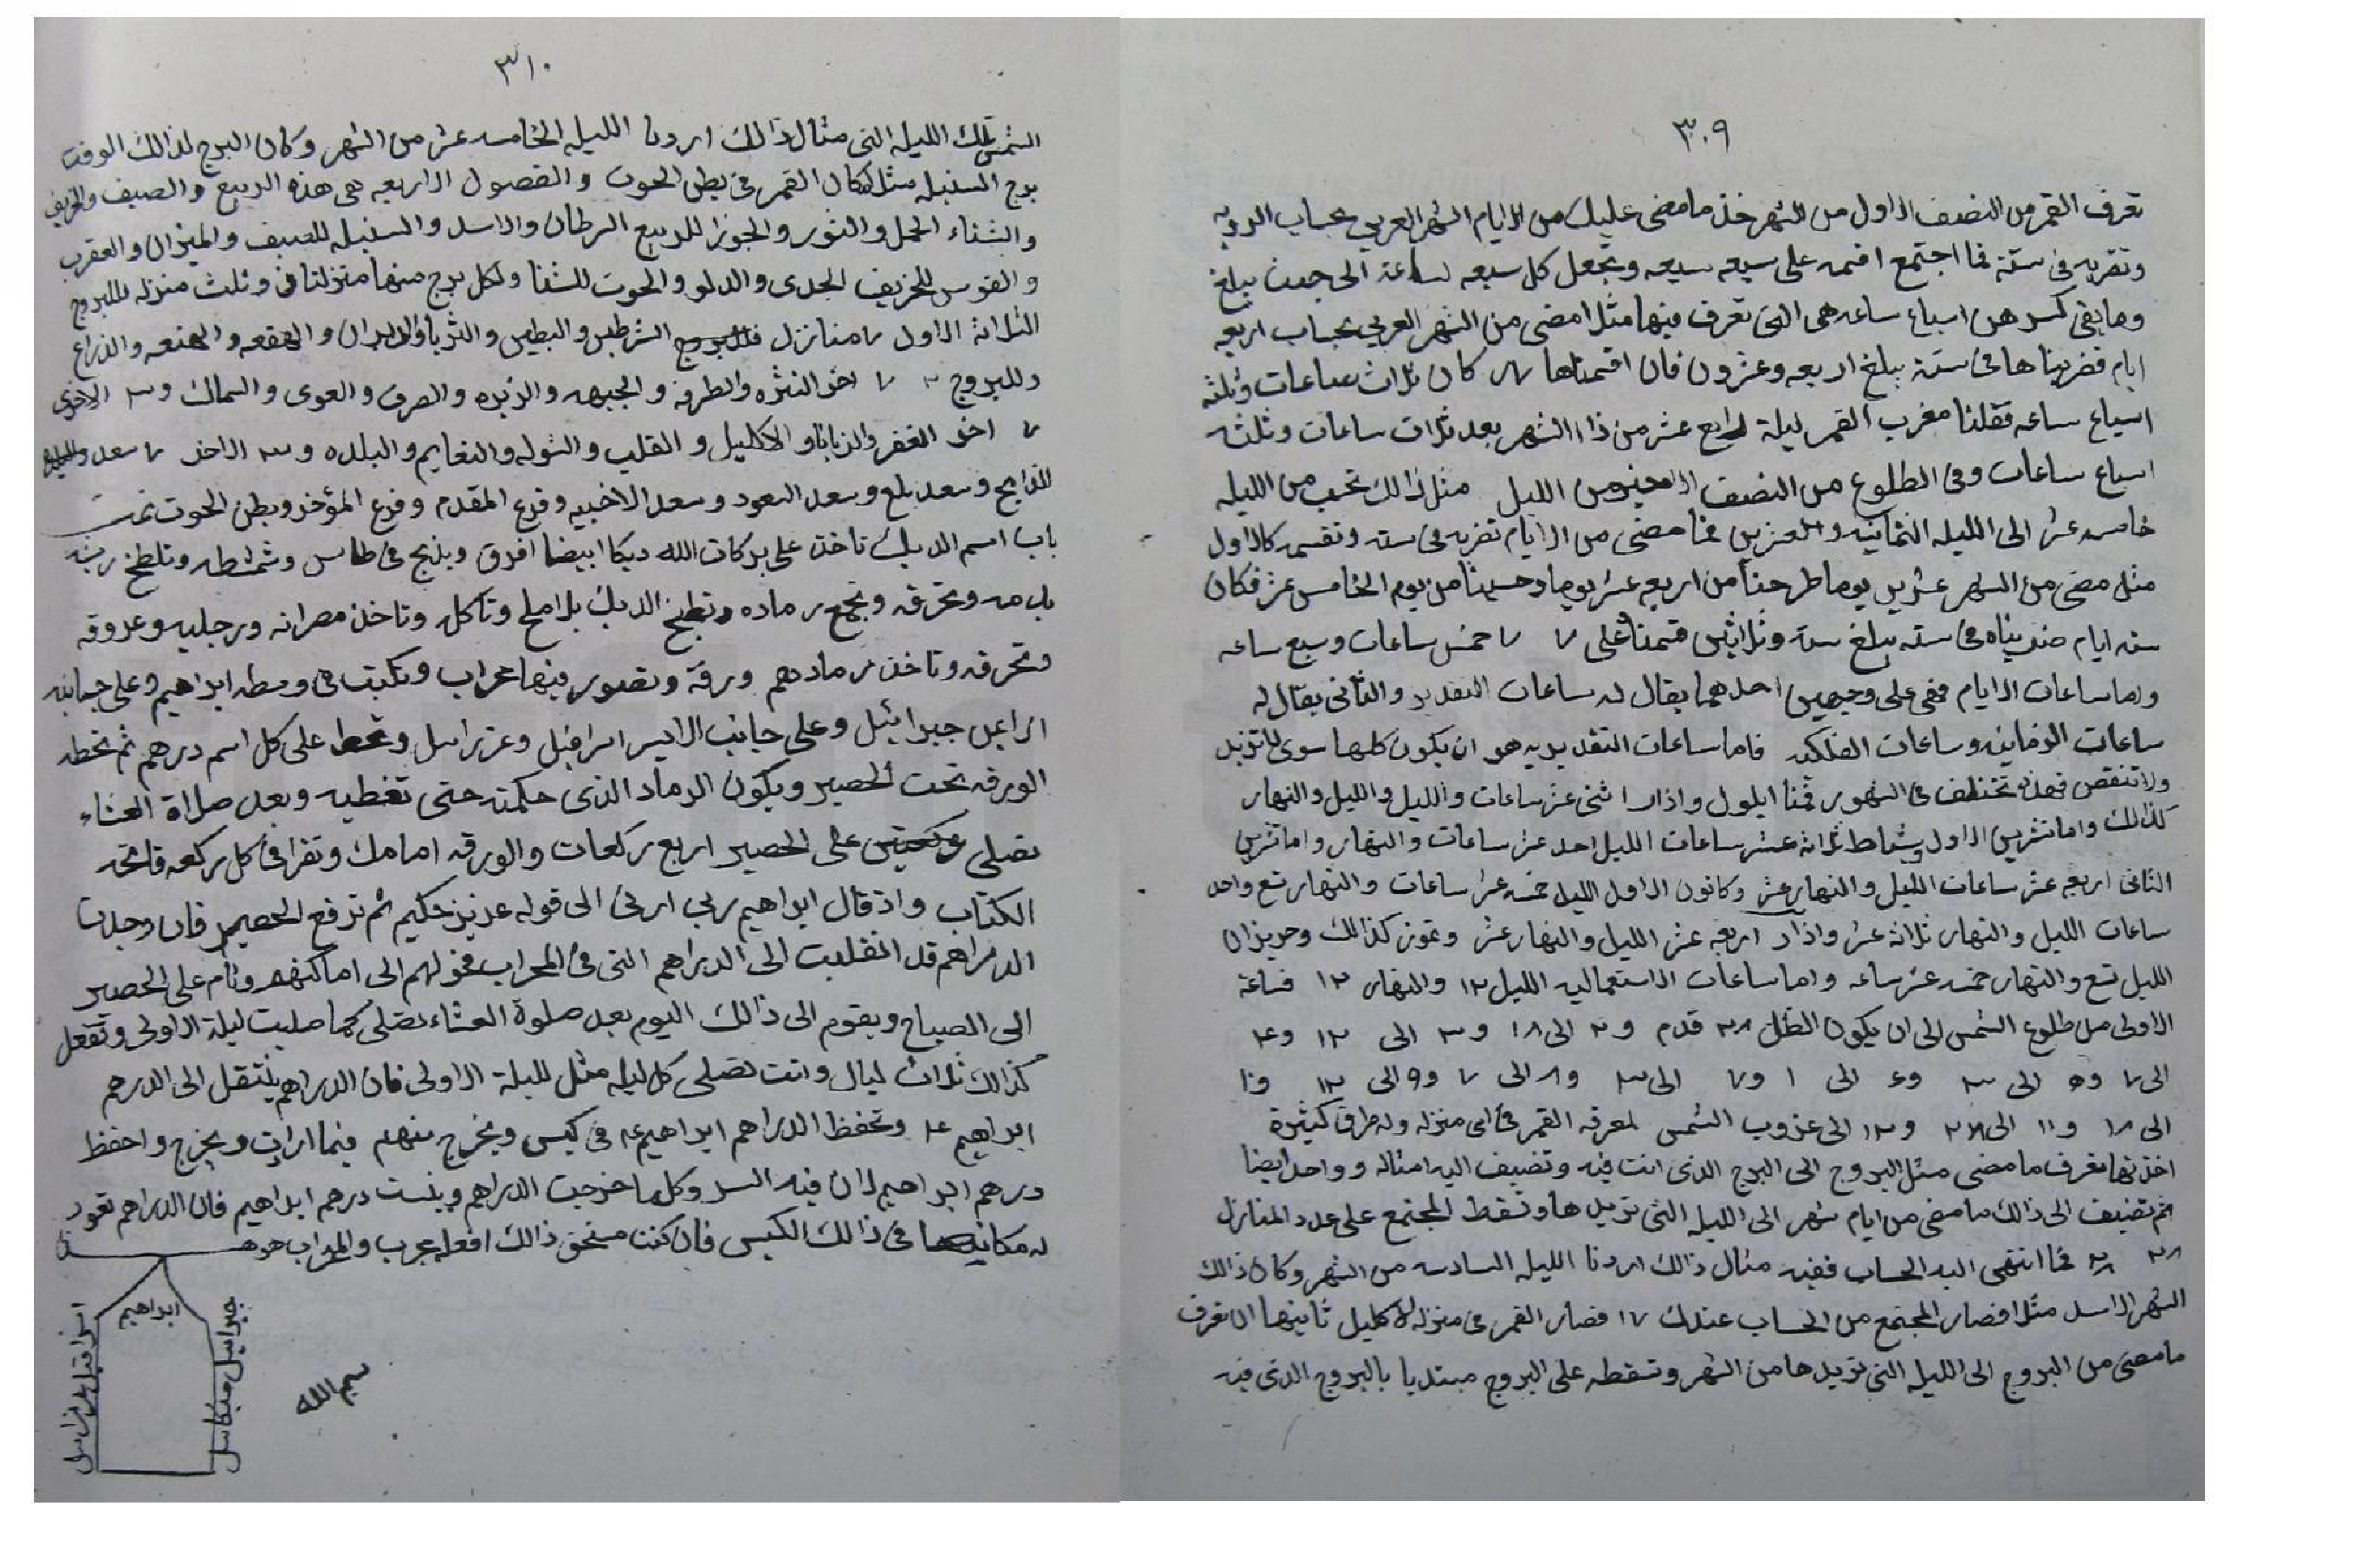 ٣٠٩
تعرف القمر من النصف الاول من الشهر خذ ما مضى عليك من الايام الشهر العربي بحساب الرويه
وتضربه في ستة فما اجتمع اقسمه على سبعه سبعه وتجعل كل سبعه ساعة الى حيث يبلغ
وما بقي كسر هن اسباع ساعه هي التي تعرف فيها مثلا مضى من الشهر العربي بحساب اربعه
ايام فضربناها في ستة يبلغ اربعه وعشرون فان اقسمناها ٧ كان ثلاث ساعات وثلثه
اسباع ساعه فقلنا مغرب القمر ليلة رابع عشر من ذا الشهر بعد ثلاث ساعات وثلثه
اسباع ساعات وفي الطلوع من النصف الاخير من الليل مثل ذالك تحسب من الليله
خامسه عشر الى الليله الثمانيه والعشرين فما مضى من الايام تضربه في سته وتقسمه كالاول
مثل مضى من الشهر عشرين يوما طرحنا من اربعه عشر يوما وحسبنا من يوم الخامس عشر فكان
سته ايام ضربناه في سته يبلغ ستة وثلاثين قسمناه على ٧ ٧ خمس ساعات وسبع ساعه
واما ساعات الايام فهي على وجهين احدهما يقال له ساعات التقدير والثاني يقال له
ساعات الزمانيه وساعات الفلكيه فاما ساعات التقديريه هو ان يكون كلها سوى لا تزيد
ولا تنقص فهذه تختلف في الشهور فمنا ايلول واذار اثني عشر ساعات والليل والليل والنهار
كذالك واما تشرين الاول وشباط ثلاثة عشر ساعات الليل احد عشر ساعات والنهار واما تشرين
الثاني اربعه عشر ساعات الليل والنهار عشر وكانون الاول الليل خمسه عشر ساعات والنهار تسع واحد
ساعات الليل والنهار ثلاثه عشر واذار اربعه عشر الليل والنهار عشر وتموز كذالك وحزيران
الليل تسع والنهار خمسه عشر ساعه واما ساعات الاستعماليه الليل ١٢ والنهار ١٢ فساعة
الاولى من طلوع الشمس الى ان يكون الظل ٢٨ قدم و ٢ الى ١٨ و ٣ الى ١٢ و ٤
الى ٧ و ٥ الى ٣ و ٦ الى ١ و ٧ الى ٣ و ٨ الى ٧ و ٩ الى ١٢ و ١٠
الى ١٨ و ١١ الى ٢٨ و ١٢ الى غروب الشمس لمعرفة القمر في اي منزله وله طرق كثيرة
اخذتها تعرف ما مضى مثل البروج الى البرج الذي انت فيه وتضيف اليه امثاله وواحد ايضا
ثم تضيف الى ذالك ما مضى من ايام شهر الى الليله التي تريدها وتسقط المجتمع على عدد المنازل
٢٨ ٢٨ فما انتهى اليه الحساب ففيه مثال ذالك اردنا الليله السادسه من الشهر وكان ذالك
الشهر الاسد مثلا فصار المجتمع من الحساب عندك ١٧ فصار القمر في منزلة الاكليل ثانيها ان تعرف
ما مضى من البروج الى الليله التي تريدها من الشهر وتسقطه على البروج مبتديا بالبروج الذي فيه
٣١٠
الشمس تلك الليله التي مثال ذالك اردنا الليله الخامسه عشر من الشهر وكان البرج لذالك الوقت
برج السنبله مثلا لكان القمر في بطن الحوت والفصول الاربعه هي هذه الربيع والصيف والخريف
والشتاء الحمل والثور والجوزا للربيع السرطان والاسد والسنبله للصيف والميزان والعقرب
والقوس للخريف الجدي والدلو والحوت للشتا ولكل برج منها منزلتان وثلث منزله للبروج
الثلاثة الاول ٧ منازل الشرطين والبطين والثريا والدبران والهقعه والهنعه والذراع
وللبروج ٣ ٧ اخر النثره والطرفه والجبهه والزبره والصرف والعوى والسماك و ٣ الاخرى
٧ اخر الغفر والزبانا والاكليل والقلب والشوله والنعايم والبلده و ٣ الاخر ٧ سعد
الذابح وسعد بلع وسعد السعود وسعد الاخبيه وفرع المقدم وفرع المؤخر وبطن الحوت تمت
باب اسم الديك تاخذ على بركات الله ديكا ابيضا افرق ويذبح في طاس وشمشطه وتلطخ ريشه
بدمه وتحرقه وتجمع رماده وتطبخ الديك بلا ملح وتاكل وتاخذ مصرانه ورجليه وعروقه
وتحرقه وتاخذ رمادهم ورقة وتصور فيها محراب وتكتب في وسطه ابراهيم وعلى جبابنه
الراعين جبرائيل وعلى جانب الايسر اسرافيل وعزراسل وتحط على كل اسم درهم ثم تحطه
الورقه تحت الحصير ويكون الرماد الذي حكمته حتى تغطيه وبعد صلاة العشاء
تصلي على الحصير اربع ركعات والورقه امامك وتقرا في كل ركعه فاتحه
الكتاب واذ قال ابراهيم ربي ارني الى قوله عزيز حكيم ثم ترفع الحصير فان وجدت
الدراهم قد انقلبت الى الدراهم التي في المحراب فحولهم الى اماكنهم ونام على الحصير
الى الصباح ويقوم الى ذالك اليوم بعد صلوة العشاء تصلي كما صليت ليلة الاولى وتفعل
كذالك ثلاث ليال وانت تصلي كل ليله مثل لليلة الاولى فان الدراهم ينتقل الى الدرهم
ابراهيم ع وتحفظ الدراهم ابراهيم ع في كيس ويخرج منهم فيما اردت ويخرج واحفظ
درهم ابراهيم لان فيه السر وكل ما خرجت الدراهم وبنست درهم ابراهيم فان الدراهم تعود
له مكانها في ذالك الكيس فان كنت مستحق ذالك افعله مجرب والمحراب هو هذا
ابراهيم
جبرائيل ميكاسل
اسرافيل عزراسل
بسم الله